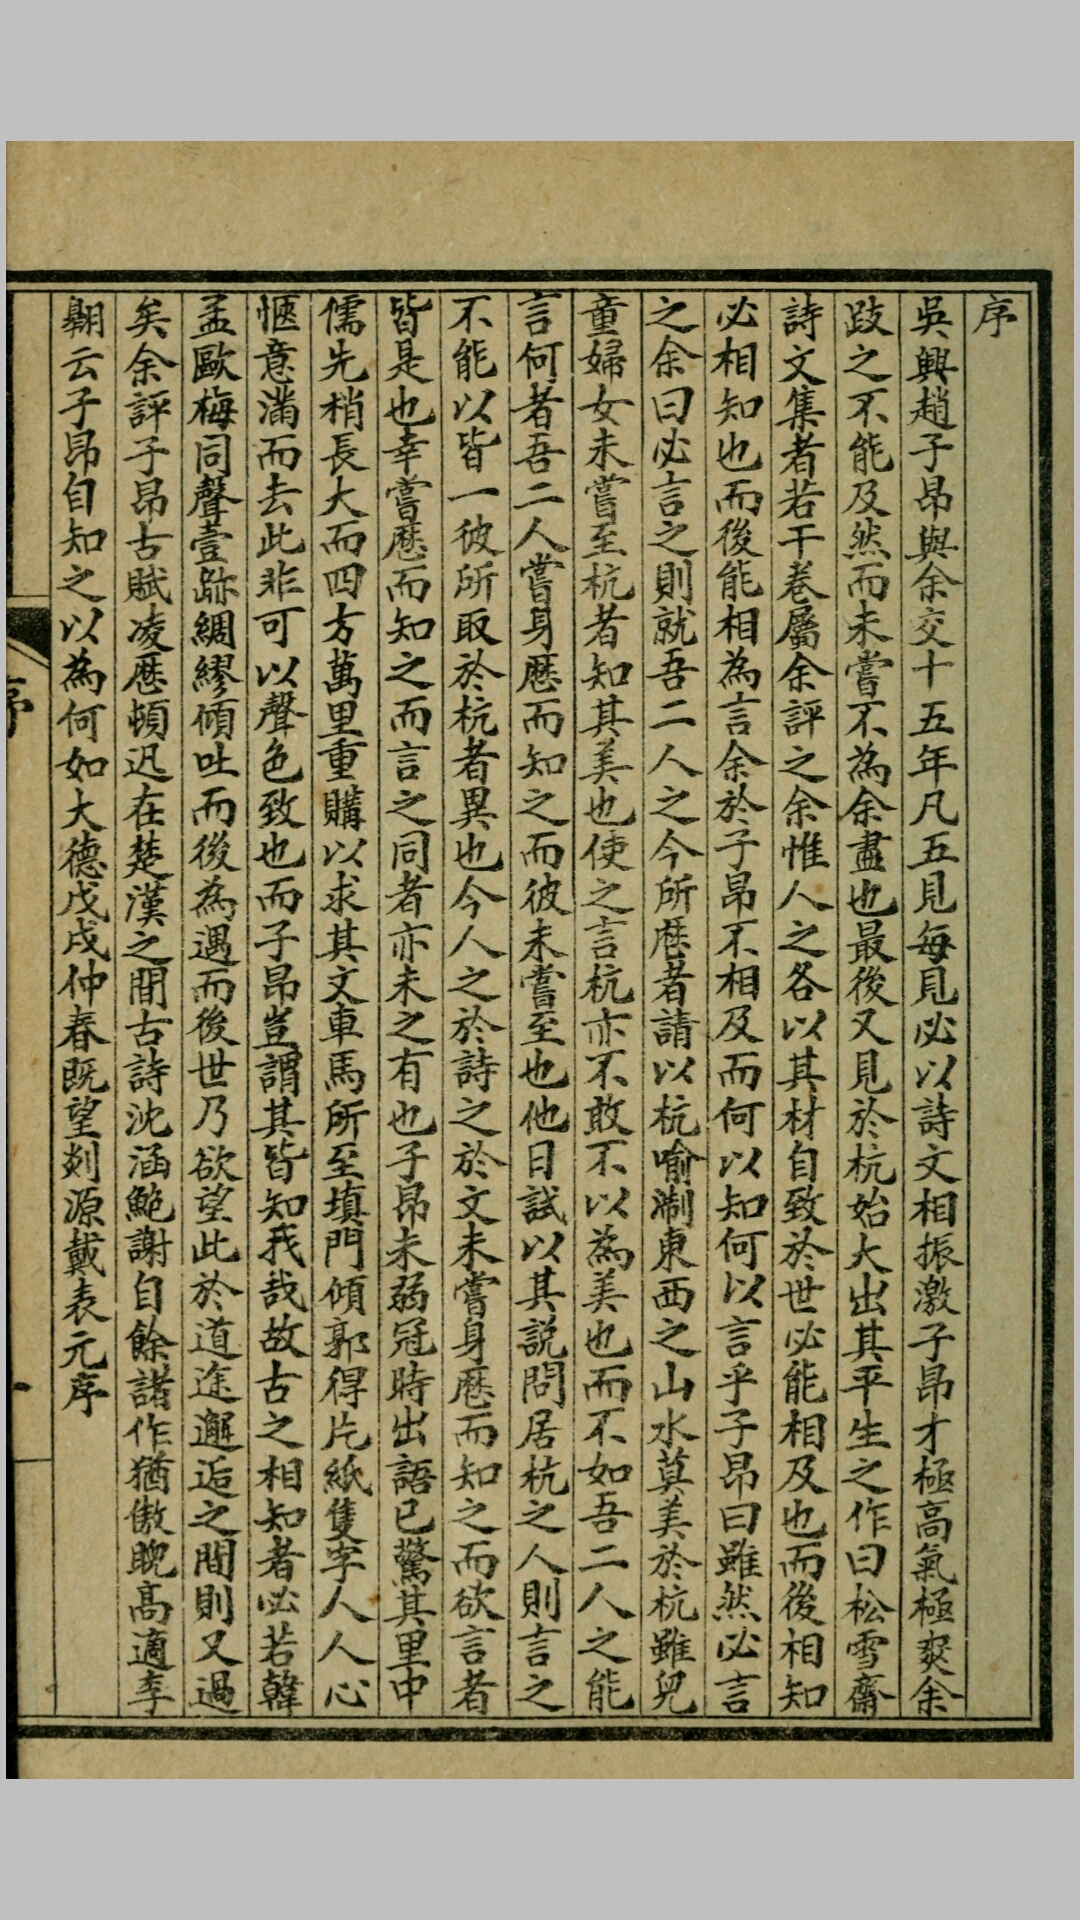 序
吳興趙子昂與余交十五年凡五見每見必以詩文相振激子昂才極高氣極爽余
跂之不能及然而未嘗不為余盡也最後又見於杭始大出其平生之作曰松雪齋
詩文集者若干卷屬余評之余惟人之各以其材自致於世必能相及也而後相知
必相知也而後能相為言余於子昂不相及而何以知何以言乎子昂曰雖然必言
之余曰必言之則就吾二人之今所歷者請以杭喻淛東西之山水莫美於杭雖兒
童婦女未嘗至杭者知其美也使之言杭亦不敢不以為美也而不如吾二人之能
言何者吾二人嘗身歷而知之而彼未嘗至也他日試以其説問居杭之人則言之
不能以皆一彼所取於杭者異也今人之於詩之於文未嘗身歷而知之而欲言者
皆是也幸嘗歷而知之而言之同者亦未之有也子昂未弱冠時出語已驚其里中
儒先稍長大而四方萬里重購以求其文車馬所至填門傾郭得片紙隻字人人心
愜意滿而去此非可以聲色致也而子昂豈謂其皆知我哉故古之相知者必若韓
孟歐梅同聲壹跡綢繆傾吐而後為遇而後世乃欲望此於道途邂逅之間則又過
矣余評子昂古賦凌歷頓迅在楚漢之間古詩沈涵鮑謝自餘諸作猶傲睨高適李
翺云子昂自知之以為何如大德戊戌仲春既望剡源戴表元序
序